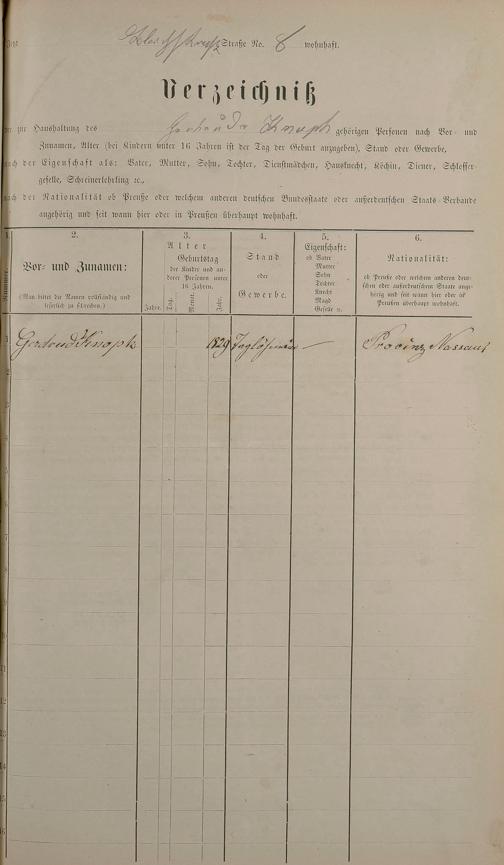 Straße No. 8 wohnhaft.
Verzeichniß
der zur Haushaltung des Knoph gehörigen Personen nach Vor- und
Zunamen, Alter (bei Kindern unter 16 Jahren ist der Tag der Geburt anzugeben), Stand oder Gewerbe,
nach der Eigenschaft als: Vater, Mutter, Sohn, Tochter, Dienstmädchen, Hausknecht, Köchin, Diener, Schlosser-
geselle, Schreinerlehrling ꝛc.,
nach der Nationalität ob Preuße oder welchem anderen deutschen Bundesstaate oder außerdeutschen Staats-Verbande
angehörig und seit wann hier oder in Preußen überhaupt wohnhaft.
1.
Nummer.
2.
Vor- und Zunamen:
(Man bittet die Namen vollständig und
leserlich zu schreiben.)
3.
Alter
Geburtstag
der Kinder und an-
derer Personen unter
16 Jahren.
Jahre.
Tag.
Monat.
Jahr.
4.
Stand
oder
Gewerbe.
5.
Eigenschaft:
ob Vater
Mutter
Sohn
Tochter
Knecht
Magd
Geselle ꝛc.
6.
Nationalität:
ob Preuße oder welchem anderen deut-
schen oder außerdeutschen Staate ange-
hörig und seit wann hier oder in
Preußen überhaupt wohnhaft.
1 Gertrud Knoph 1829 Taglöhnerin — Provinz Nassau